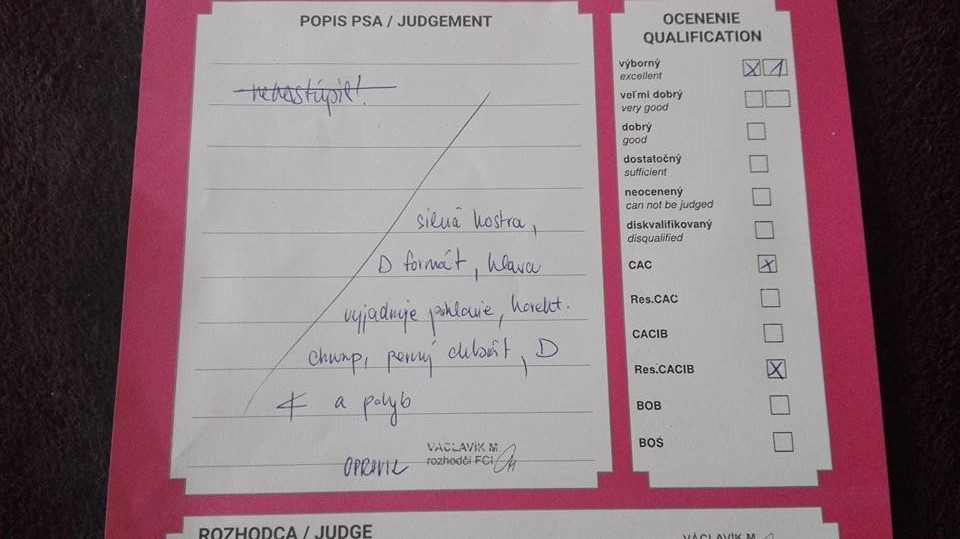 POPIS PSA / JUDGEMENT
nenastúpil!
silná kostra,
D formát, hlava
vyjadruje pohlavie, korekt.
chrup, pevný chrbát, D
a pohyb
OPRAVIL
VÁCLAVÍK M.
rozhodčí FCI
OCENENIE
QUALIFICATION
výborný
excellent
X 1
veľmi dobrý
very good
dobrý
good
dostatočný
sufficient
neocenený
can not be judged
diskvalifikovaný
disqualified
CAC X
Res.CAC
CACIB
Res.CACIB X
BOB
BOŠ
ROZHODCA / JUDGE
VÁCLAVÍK M.